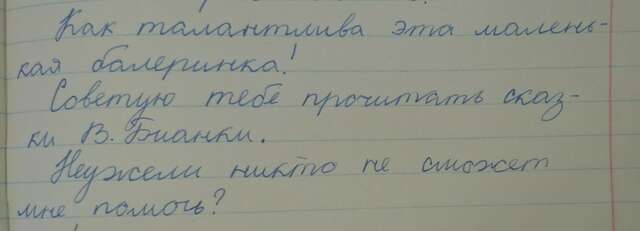 Как талантлива эта малень-
кая балеринка!
Советую тебе прочитать сказ-
ки В. Бианки.
Неужели никто не сможет
мне помочь?